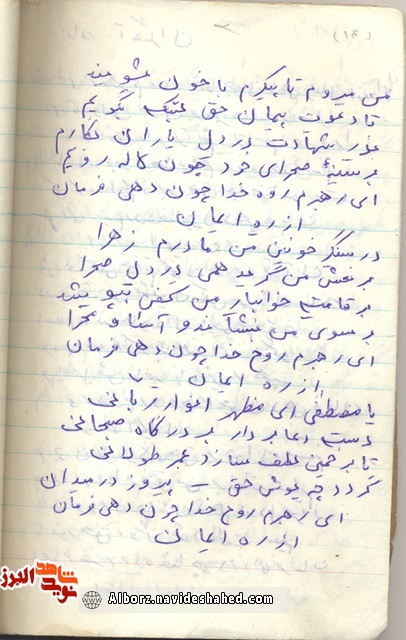 من میروم تا پیکرم با خون بشویند
تا دعوت پیمان حق لبیک گویم
بذر شهادت در دل یاران بکارم
بر سینهٔ صحرای خود چون لاله رویم
ای رهبرم روح خدا چون دهی فرمان
از ره ایمان
در سنگر خونین من مادرم زهرا
بر نعش من گرید همی در دل صحرا
بر قامت خونبار من کفن پوشد
بسوی من
ای رهبرم روح خدا چون دهی فرمان
از ره ایمان
یا مصطفی ای مظهر انوار ربانی
دست دعا بردار بر درگاه سبحانی
تا بر خمینی لطف سازد عمر طولانی
گردد چو پوش حق پیروز در میدان
ای رهبرم روح خدا چون دهی فرمان
از ره ایمان
نوید شاهد البرز
Alborz.navideshahed.com